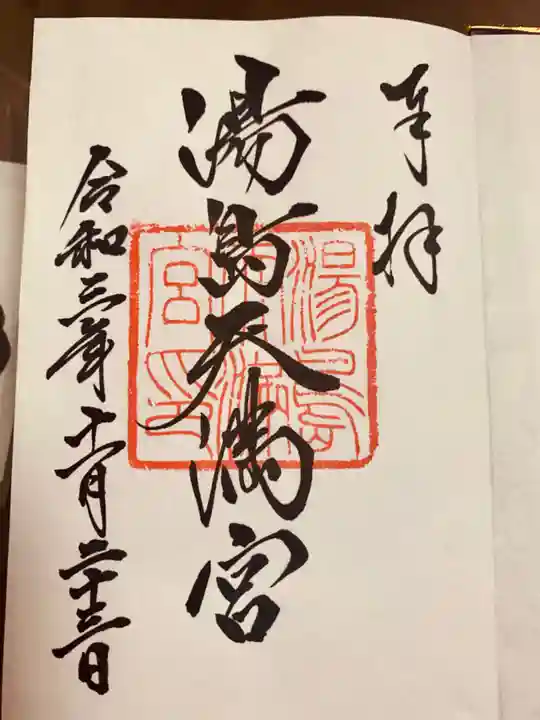 奉拝
湯島天満宮
湯島天満宮印
令和三年十一月二十三日